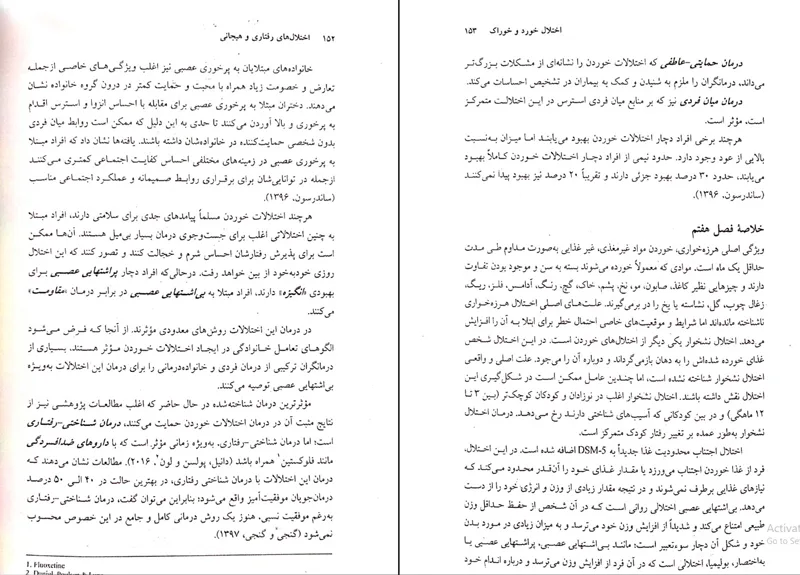 ۱۵۲ اختلال‌های رفتاری و هیجانی
خانواده‌های مبتلایان به پرخوری عصبی نیز اغلب ویژگی‌های خاصی ازجمله
تعارض و خصومت زیاد همراه با محبت و حمایت کمتر در درون گروه خانواده نشان
می‌دهند. دختران مبتلا به پرخوری عصبی برای مقابله با احساس انزوا و استرس اقدام
به پرخوری و بالا آوردن می‌کنند تا حدی به این دلیل که ممکن است روابط میان فردی
بدون شخصی حمایت‌کننده در خانواده‌شان داشته باشند. یافته‌ها نشان داد که افراد مبتلا
به پرخوری عصبی در زمینه‌های مختلفی احساس کفایت اجتماعی کمتری می‌کنند
ازجمله در توانایی‌شان برای برقراری روابط صمیمانه و عملکرد اجتماعی مناسب
(ساندرسون، ۱۳۹۶).
هرچند اختلالات خوردن مسلماً پیامدهای جدی برای سلامتی دارند، افراد مبتلا
به چنین اختلالاتی اغلب برای جست‌وجوی درمان بسیار بی‌میل هستند. آن‌ها ممکن
است برای پذیرش رفتارشان احساس شرم و خجالت کنند و تصور کنند که این اختلال
روزی خودبه‌خود از بین خواهد رفت. درحالی‌که افراد دچار پراشتهایی عصبی برای
بهبودی «انگیزه» دارند، افراد مبتلا به بی‌اشتهایی عصبی در برابر درمان «مقاومت»
می‌کنند.
در درمان این اختلالات روش‌های معدودی مؤثرند. از آنجا که فرض می‌شود
الگوهای تعامل خانوادگی در ایجاد اختلالات خوردن مؤثر هستند، بسیاری از
درمانگران ترکیبی از درمان فردی و خانواده‌درمانی را برای درمان این اختلالات به‌ویژه
بی‌اشتهایی عصبی توصیه می‌کنند.
مؤثرترین درمان شناخته‌شده در حال حاضر که اغلب مطالعات پژوهشی نیز از
نتایج مثبت آن در درمان اختلالات خوردن حمایت می‌کنند، درمان شناختی-رفتاری
است؛ اما درمان شناختی-رفتاری، به‌ویژه زمانی مؤثر است که با داروهای ضدافسردگی
مانند فلوکستین¹ همراه باشد (دانیل، پولسن و لون²، ۲۰۱۶). مطالعات نشان می‌دهند که
درمان این اختلالات با درمان شناختی رفتاری، در بهترین حالت در ۴۰ الی ۵۰ درصد
درمان‌جویان موفقیت‌آمیز واقع می‌شود؛ بنابراین می‌توان گفت، درمان شناختی-رفتاری
به‌رغم موفقیت نسبی، هنوز یک روش درمانی کامل و جامع در این خصوص محسوب
نمی‌شود (گنجی و گنجی، ۱۳۹۷).
1. Fluoxetine
اختلال خورد و خوراک ۱۵۳
درمان حمایتی-عاطفی که اختلالات خوردن را نشانه‌ای از مشکلات بزرگ‌تر
می‌داند، درمانگران را ملزم به شنیدن و کمک به بیماران در تشخیص احساسات می‌کند.
درمان میان فردی نیز که بر منابع میان فردی استرس در این اختلالت متمرکز
است، مؤثر است.
هرچند برخی افراد دچار اختلالات خوردن بهبود می‌یابند اما میزان به‌نسبت
بالایی از عود وجود دارد. حدود نیمی از افراد دچار اختلالات خوردن کاملاً بهبود
می‌یابند، حدود ۳۰ درصد بهبود جزئی دارند و تقریباً ۲۰ درصد نیز بهبود پیدا نمی‌کنند
(ساندرسون، ۱۳۹۶).
خلاصهٔ فصل هفتم
ویژگی اصلی هرزه‌خواری، خوردن مواد غیرمغذی، غیر غذایی به‌صورت مداوم طی مدت
حداقل یک ماه است. موادی که معمولاً خورده می‌شوند بسته به سن و موجود بودن تفاوت
دارند و چیزهایی نظیر کاغذ، صابون، مو، نخ، پشم، خاک، گچ، رنگ، آدامس، فلز، ریگ،
زغال چوب، گل، نشاسته یا یخ را در برمی‌گیرند. علت‌های اصلی اختلال هرزه‌خواری
ناشناخته مانده‌اند اما شرایط و موقعیت‌های خاصی احتمال خطر برای ابتلا به آن را افزایش
می‌دهد. اختلال نشخوار یکی دیگر از اختلال‌های خوردن است. در این اختلال شخص
غذای خورده شده‌اش را به دهان بازمی‌گرداند و دوباره آن را می‌جود. علت اصلی و واقعی
اختلال نشخوار شناخته نشده است، اما چندین عامل ممکن است در شکل‌گیری این
اختلال نقش داشته باشند. اختلال نشخوار اغلب در نوزادان و کودکان کوچک‌تر (بین ۳ تا
۱۲ ماهگی) و در بین کودکانی که آسیب‌های شناختی دارند رخ می‌دهد. درمان اختلال
نشخوار به‌طور عمده بر تغییر رفتار کودک متمرکز است.
اختلال اجتناب محدودیت غذا جدیداً به DSM-5 اضافه شده است. در این اختلال،
فرد از غذا خوردن اجتناب می‌ورزد یا مقدار غذای خود را آن‌قدر محدود می‌کند که
نیازهای غذایی برطرف نمی‌شوند و در نتیجه مقدار زیادی از وزن و انرژی خود را از دست
می‌دهد. بی‌اشتهایی عصبی اختلالی روانی است که در آن شخص از حفظ حداقل وزن
طبیعی امتناع می‌کند و شدیداً از افزایش وزن خود می‌ترسد و به میزان زیادی در مورد بدن
خود و شکل آن دچار سوءتعبیر است؛ مانند بی‌اشتهایی عصبی، پراشتهایی عصبی یا
به‌اختصار، بولیمیا، اختلالی است که در آن فرد از افزایش وزن می‌ترسد و درباره اندام خود
Activat
Go to Se